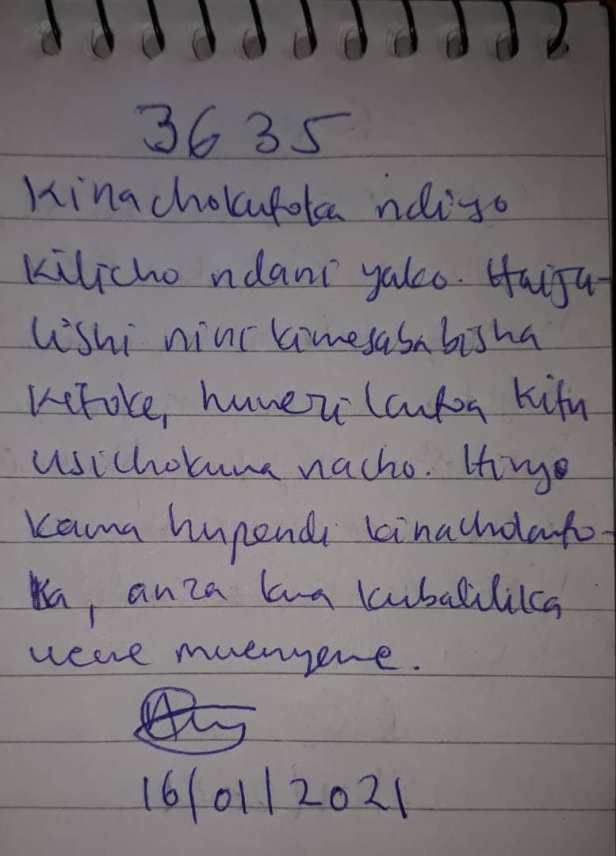 3635
Kinachokutoka ndiyo
kilicho ndani yako. Haija-
lishi nini kimesababisha
kitoke, huwezi kutoa kitu
usichokuwa nacho. Hivyo
kama hupendi kinachokuto-
ka, anza kwa kubadilika
wewe mwenyewe.
16/01/2021